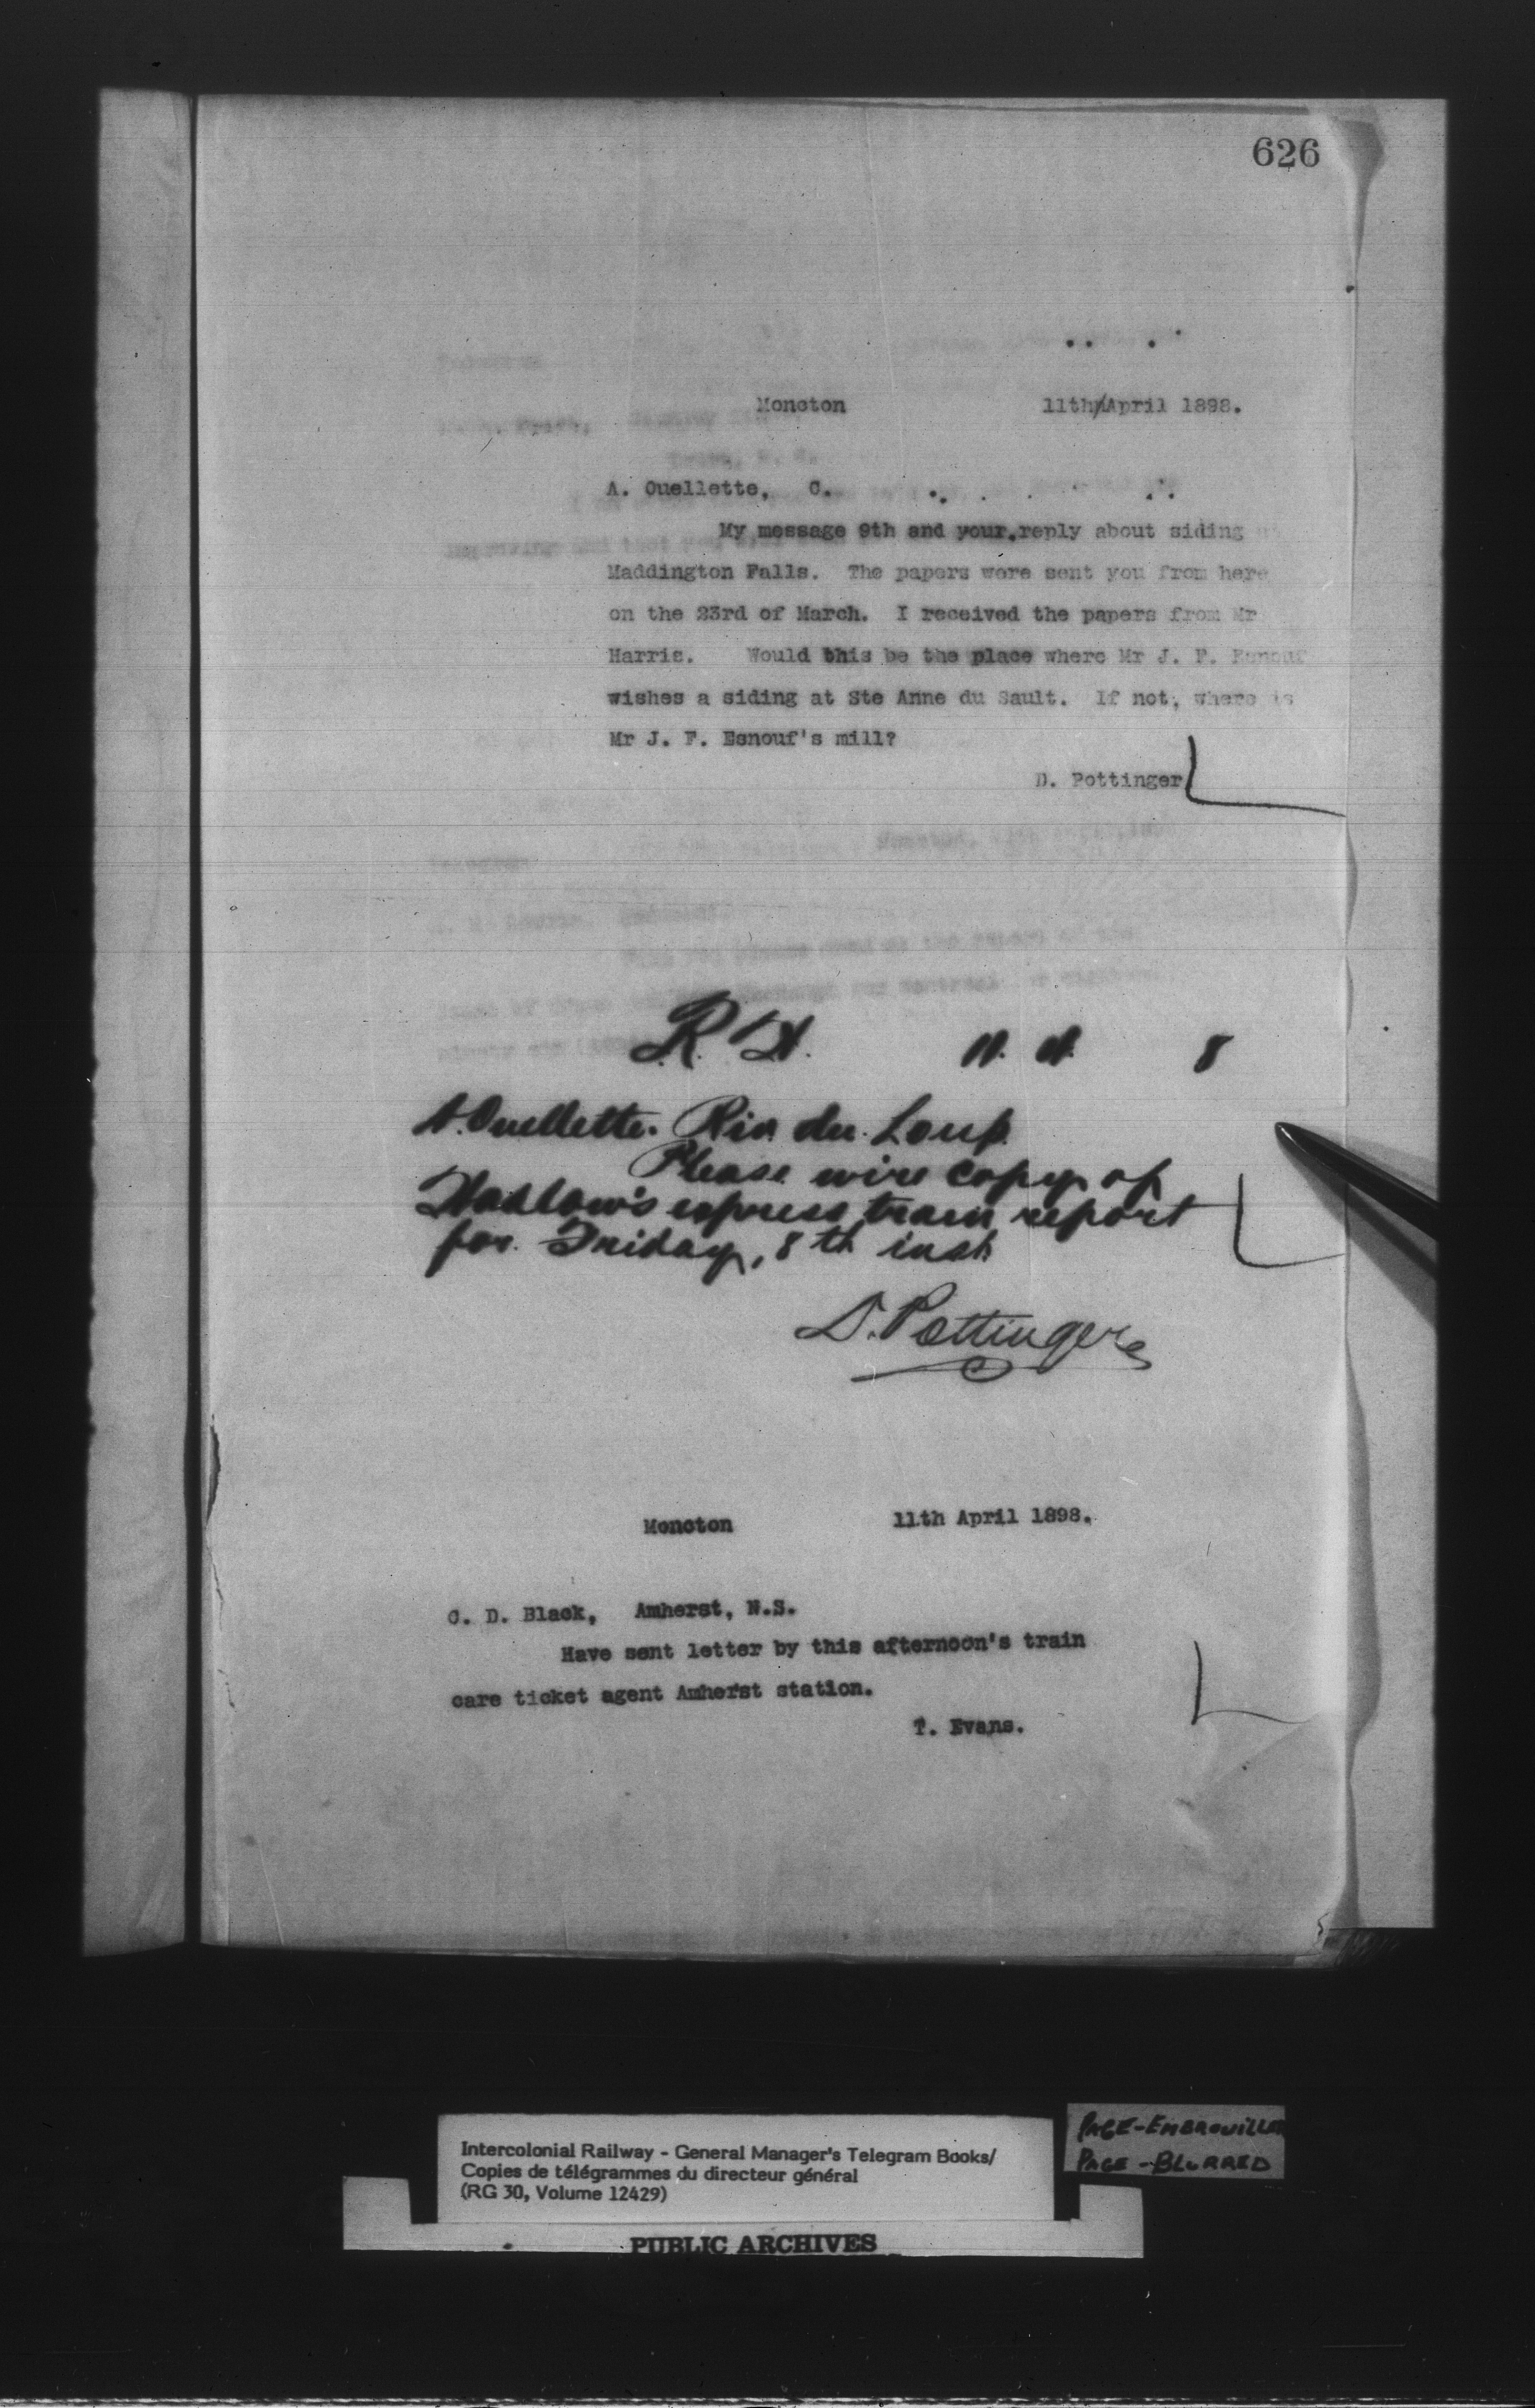 626
Moncton 11th/April 1898.
A. Ouellette, C.
My message 9th and your reply about siding
Maddington Falls. The papers were sent you from here
on the 23rd of March. I received the papers from Mr
Harris. Would this be the place where Mr J. F. Esnouf
wishes a siding at Ste Anne du Sault. If not, where is
Mr J. F. Esnouf's mill?
D. Pottinger
8
A. Ouellette. Riv du Loup
Please wire copy of
express train report
for Friday, 8th inst
D. Pottinger
Moncton 11th April 1898.
C. D. Black, Amherst, N.S.
Have sent letter by this afternoon's train
care ticket agent Amherst station.
T. Evans.
Intercolonial Railway - General Manager's Telegram Books/
Copies de télégrammes du directeur général
(RG 30, Volume 12429)
PAGE-EMBROUILLÉE
PAGE-BLURRED
PUBLIC ARCHIVES